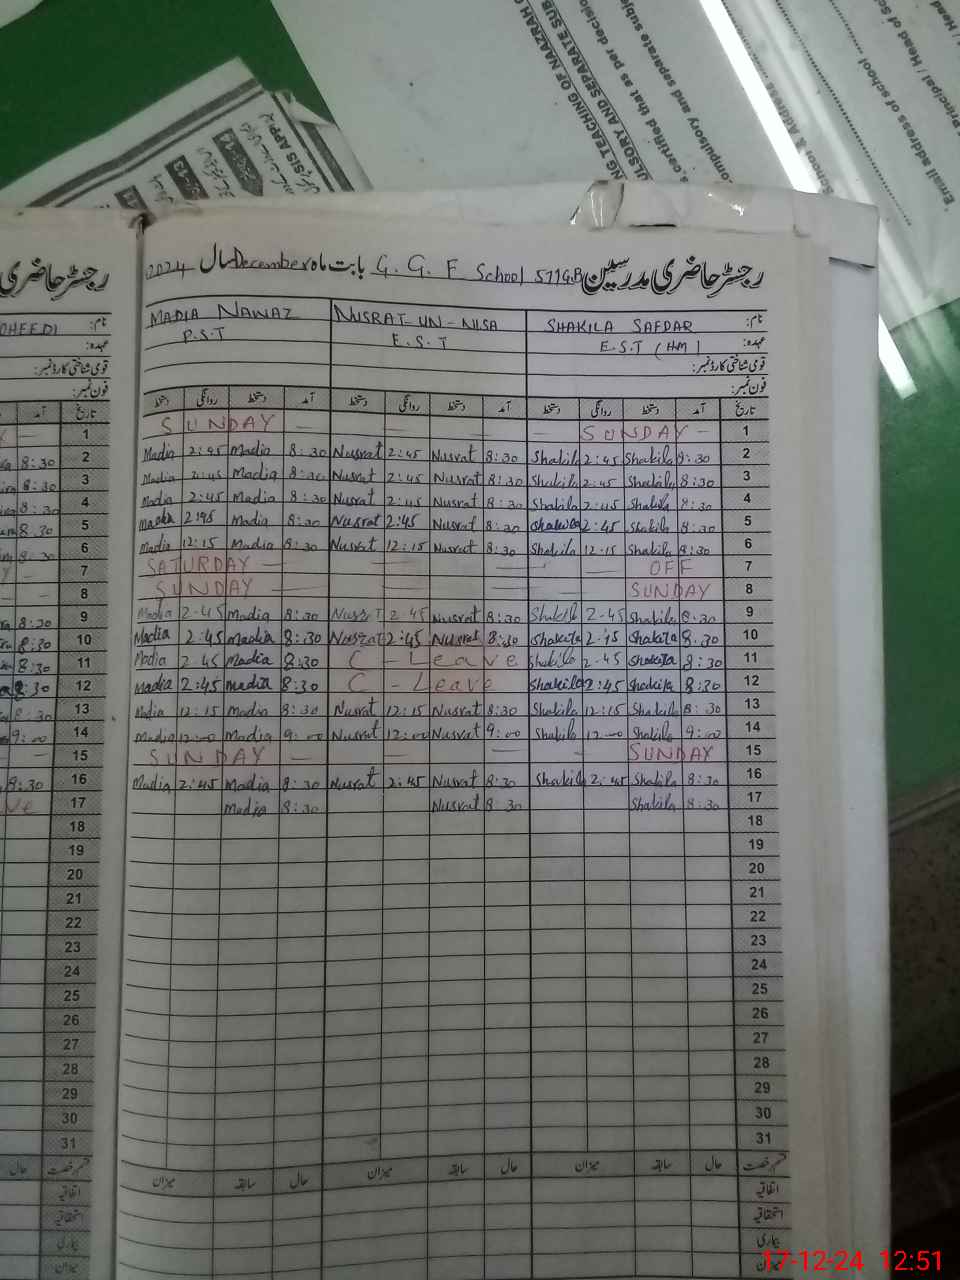 NG TEACHING OF NAAZRAH
ULSORY AND SEPARATE SUB
s certified that as per decision
compulsory and separate subje
School & Address
Email address of school
Principal / Head of sc
/ Head
SIS APP
رجسٹر حاضری مدرسین G. G. F School 571GB بابت ماہ December سال 2024
نام: SHAKILA SAFDAR NUSRAT UN-NISA MADIA NAWAZ
عہدہ: E.S.T (HM) E.S.T P.S.T
قومی شناختی کارڈ نمبر:
فون نمبر:
تاریخ آمد دستخط روانگی دستخط آمد دستخط روانگی دستخط آمد دستخط روانگی دستخط
1 SUNDAY SUNDAY
2 8:30 Shakila 2:45 Shakila 8:30 Nusrat 2:45 Nusrat 8:30 Madia 2:45 Madia
3 8:30 Shakila 2:45 Shakila 8:30 Nusrat 2:45 Nusrat 8:30 Madia 2:45 Madia
4 8:30 Shakila 2:45 Shakila 8:30 Nusrat 2:45 Nusrat 8:30 Madia 2:45 Madia
5 8:30 Shakila 2:45 Shakila 8:30 Nusrat 2:45 Nusrat 8:30 Madia 2:45 Madia
6 8:30 Shakila 12:15 Shakila 8:30 Nusrat 12:15 Nusrat 8:30 Madia 12:15 Madia
7 OFF SATURDAY
8 SUNDAY SUNDAY
9 8:30 Shakila 2:45 Shakila 8:30 Nusrat 2:45 Nusrat 8:30 Madia 2:45 Madia
10 8:30 Shakila 2:45 Shakila 8:30 Nusrat 2:45 Nusrat 8:30 Madia 2:45 Madia
11 8:30 Shakila 2:45 Shakila C-Leave 8:30 Madia 2:45 Madia
12 8:30 Shakila 2:45 Shakila C-Leave 8:30 Madia 2:45 Madia
13 8:30 Shakila 12:15 Shakila 8:30 Nusrat 12:15 Nusrat 8:30 Madia 12:15 Madia
14 9:00 Shakila 12:00 Shakila 9:00 Nusrat 12:00 Nusrat 9:00 Madia 12:00 Madia
15 SUNDAY SUNDAY
16 8:30 Shakila 2:45 Shakila 8:30 Nusrat 2:45 Nusrat 8:30 Madia 2:45 Madia
17 8:30 Shakila 8:30 Nusrat 8:30 Madia
18
19
20
21
22
23
24
25
26
27
28
29
30
31
قسم رخصت حال سابقہ میزان حال سابقہ میزان حال سابقہ میزان
اتفاقیہ
استحقاقیہ
بیماری
میزان
رجسٹر حاضری
نام: OHEEDI
عہدہ:
قومی شناختی کارڈ نمبر:
فون نمبر:
تاریخ آمد
1
2 8:30
3 8:30
4 8:30
5 8:30
6 8:30
7
8
9 8:30
10 8:30
11 8:30
12 8:30
13 8:30
14 9:00
15
16 8:30
17 ve
18
19
20
21
22
23
24
25
26
27
28
29
30
31
قسم رخصت حال
اتفاقیہ
استحقاقیہ
بیماری
میزان
17-12-24 12:51